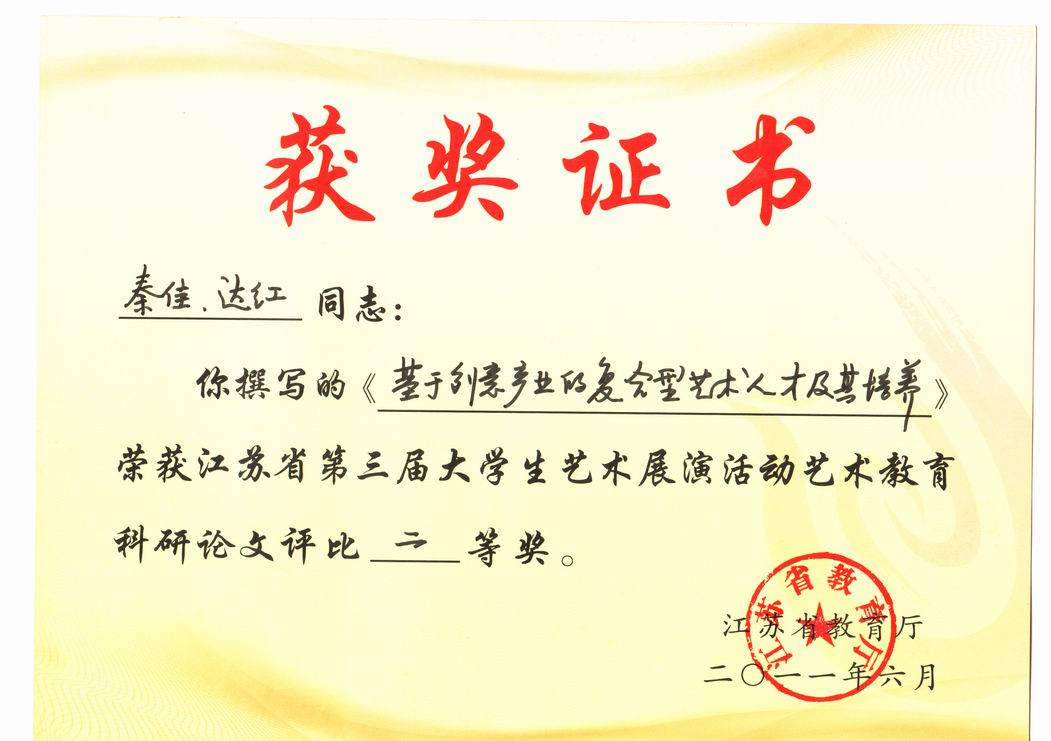 获奖证书
秦佳、达红 同志：
你撰写的《基于创意产业的复合型艺术人才及其培养》
荣获江苏省第三届大学生艺术展演活动艺术教育
科研论文评比 二 等奖。
江苏省教育厅
江苏省教育厅
二〇一一年六月